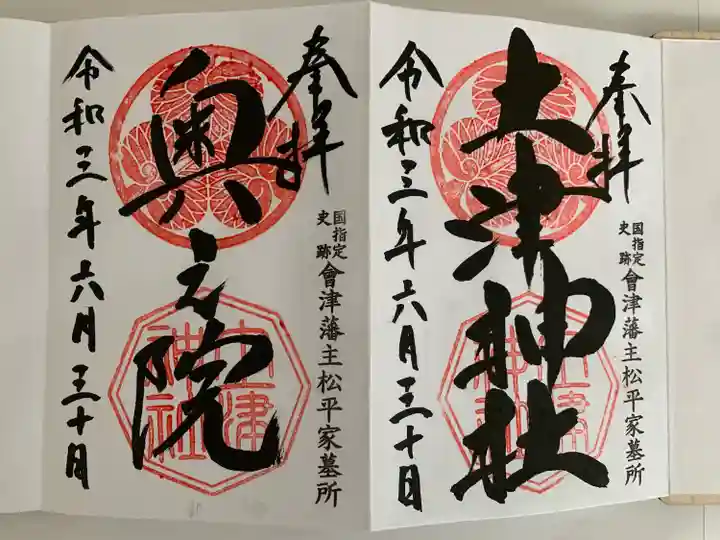 奉拝
土津神社
国指定
史跡
會津藩主松平家墓所
令和三年六月三十日
土津
神社
奉拝
奥之院
国指定
史跡
會津藩主松平家墓所
令和三年六月三十日
土津
神社